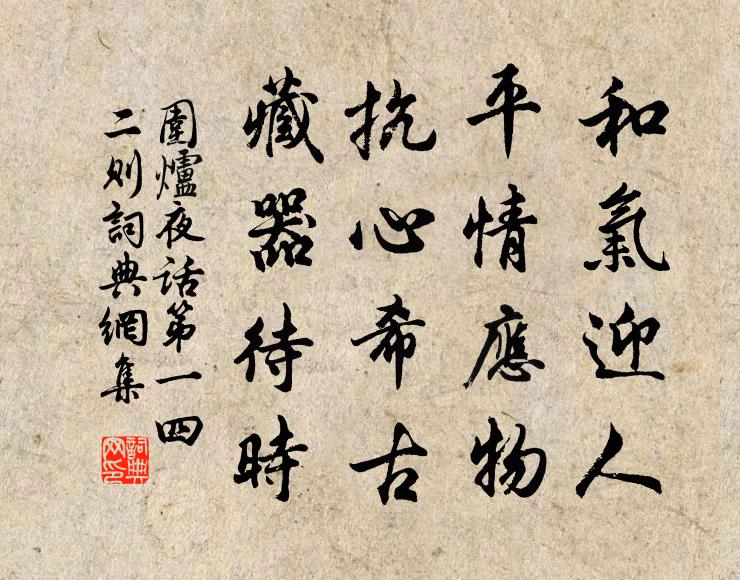 和氣迎人
平情應物
抗心希古
藏器待時
圍爐夜话第一四
二则詞典網集
詞典
网印